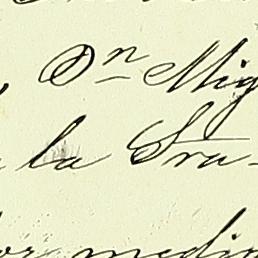 , Dn Mig
la Tra-
or medi